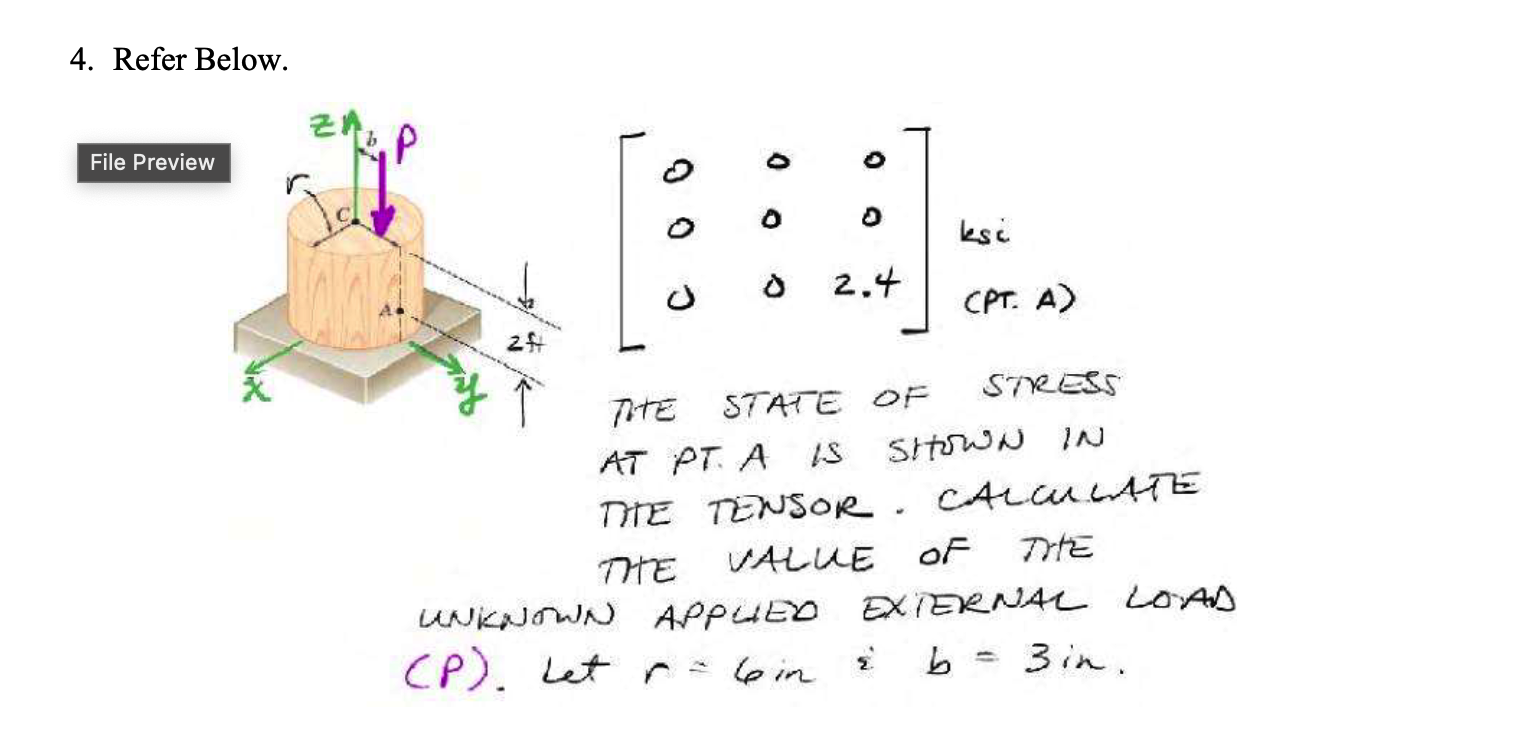 4. Refer Below.
File Preview
z
b
P
r
C
A
2 ft
x
y
0 0 0
0 0 0
0 0 2.4
ksi
(PT. A)
THE STATE OF STRESS
AT PT. A IS SHOWN IN
THE TENSOR. CALCULATE
THE VALUE OF THE
UNKNOWN APPLIED EXTERNAL LOAD
(P). Let r = 6 in & b = 3 in.